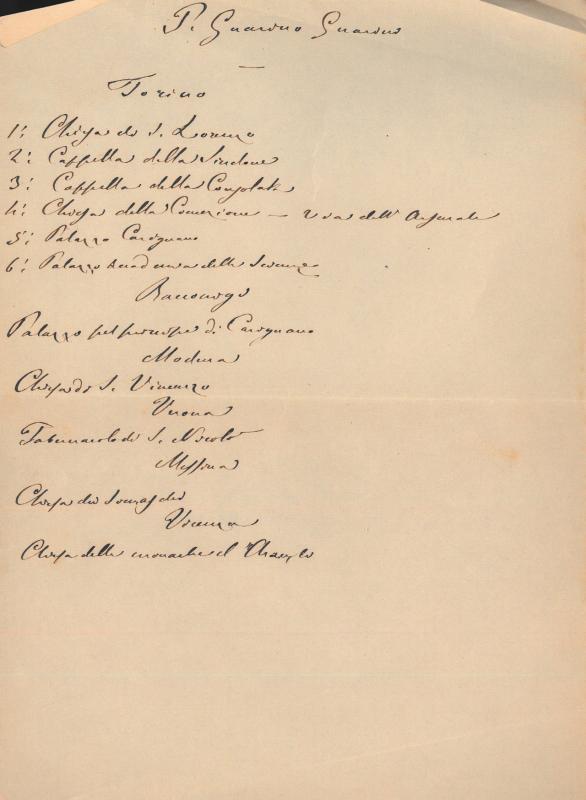 P. Guarino Guarini
Torino
1: Chiesa di S. Lorenzo
2: Cappella della Sindone
3: Cappella della Consolata
4: Chiesa della Concezione — via dell' Arsenale
5: Palazzo Carignano
6: Palazzo Accademia delle Scienze
Racconigi
Palazzo pel principe di Carignano
Modena
Chiesa di S. Vincenzo
Verona
Tabernacolo di S. Nicolò
Messina
Chiesa dei Somaschi
Vicenza
Chiesa delle monache d'